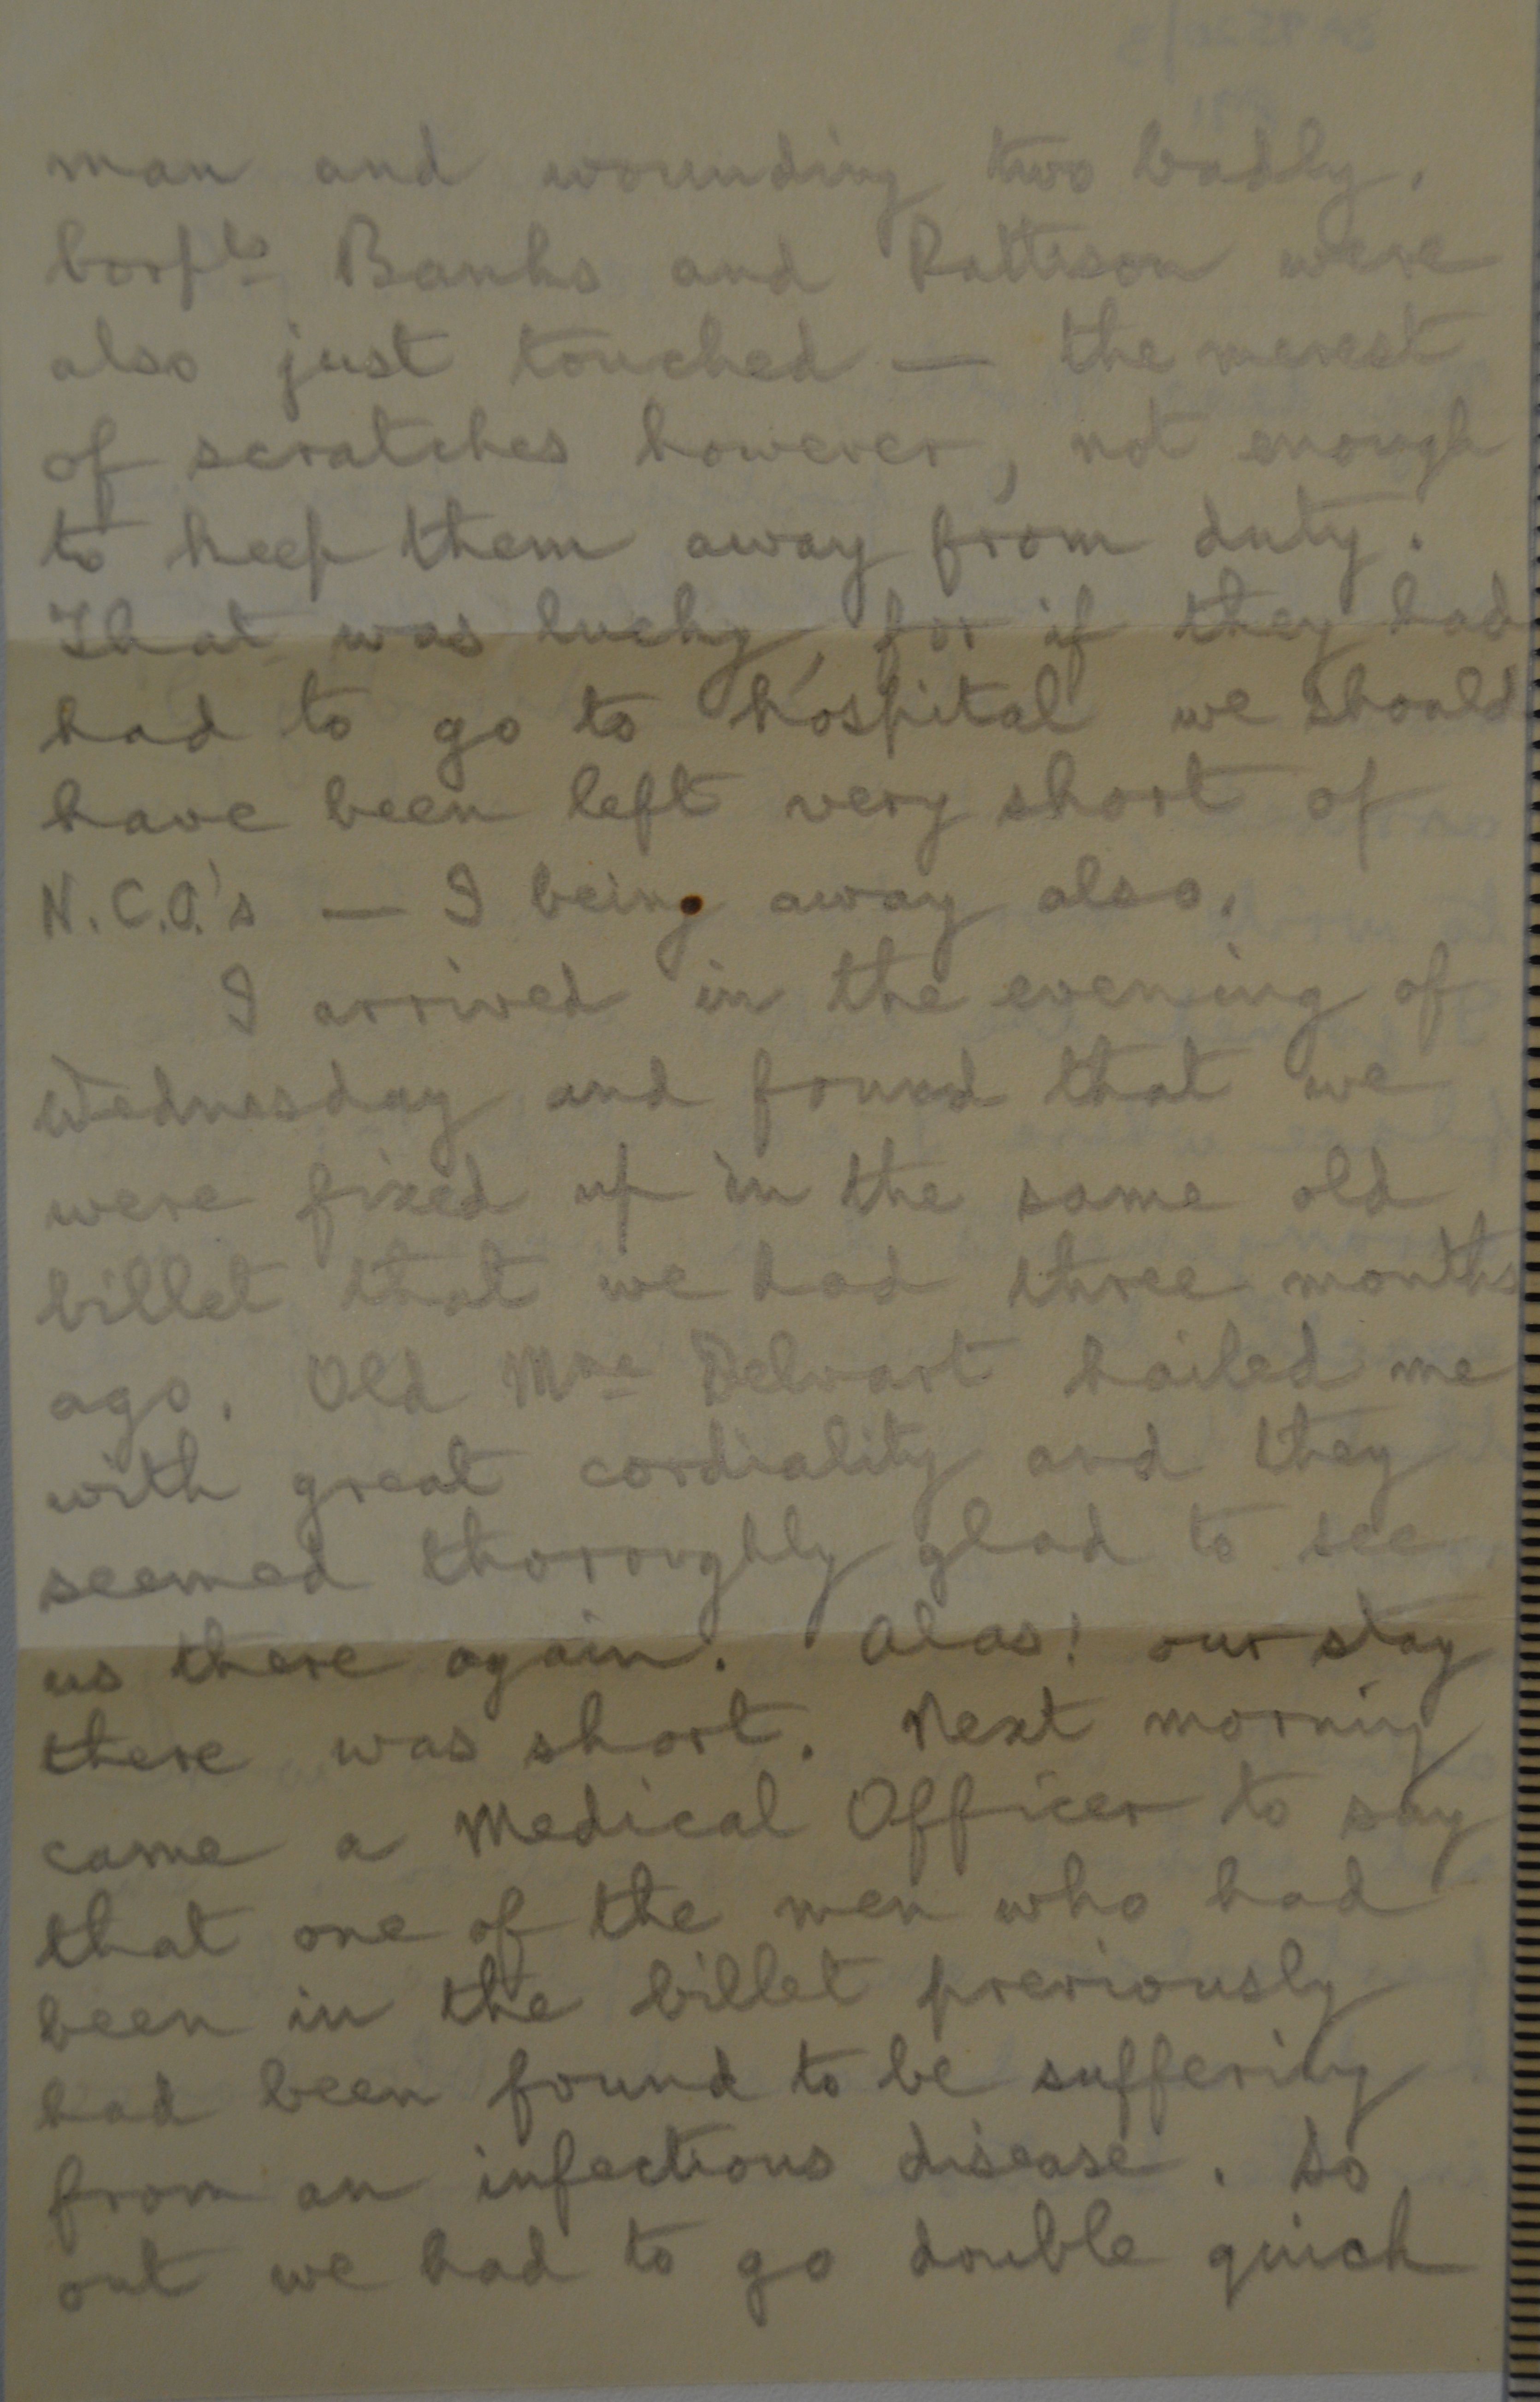 man and wounding two badly.
Corpls Banks and Pattison were
also just touched — the merest
of scratches however, not enough
to keep them away from duty.
That was lucky, for if they had
had to go to hospital we should
have been left very short of
N.C.O.'s — I being away also.
I arrived in the evening of
Wednesday and found that we
were fixed up in the same old
billet that we had three months
ago. Old Mme Delvart hailed me
with great cordiality and they
seemed thoroughly glad to see
us there again. Alas! our stay
there was short. Next morning
came a Medical Officer to say
that one of the men who had
been in the billet previously
had been found to be suffering
from an infectious disease. So
out we had to go double quick